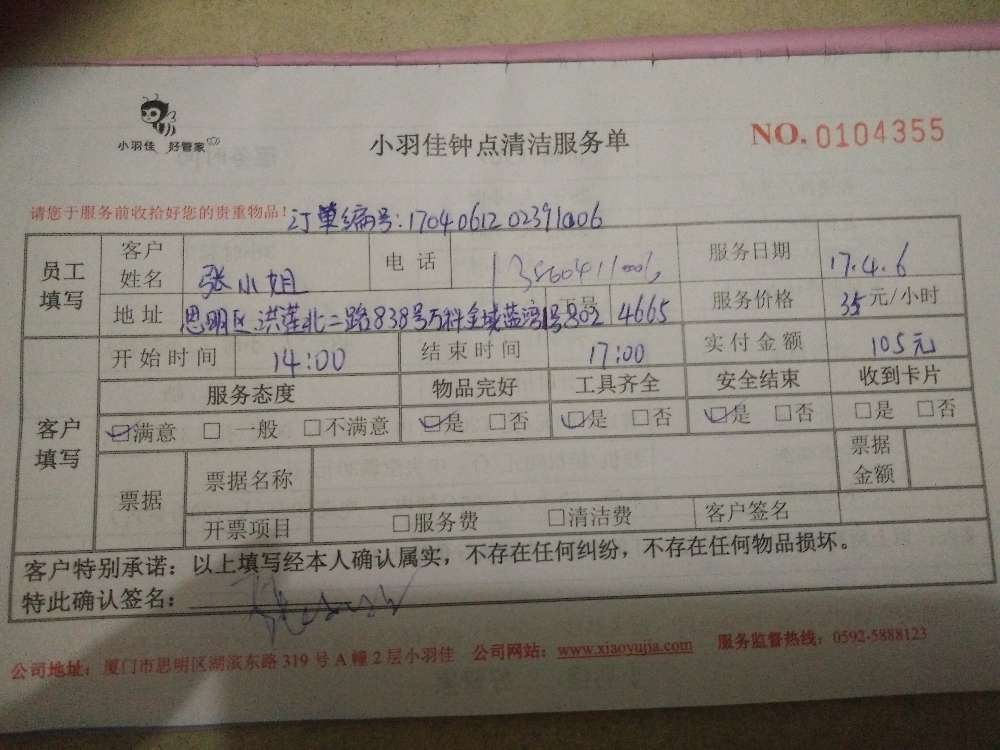 小羽佳 好管家
小羽佳钟点清洁服务单
NO. 0104355
请您于服务前收拾好您的贵重物品!
订单编号:1704061202391006
员工填写 客户姓名 张小姐 电话 服务日期 17.4.6
地址 思明区洪莲北二路838号万科金域蓝湾1号802 工号 4665 服务价格 35元/小时
开始时间 14:00 结束时间 17:00 实付金额 105元
客户填写 服务态度 物品完好 工具齐全 安全结束 收到卡片
☑满意 □一般 □不满意 ☑是 □否 ☑是 □否 ☑是 □否 □是 □否
票据 票据名称 票据金额
开票项目 □服务费 □清洁费 客户签名
客户特别承诺:以上填写经本人确认属实,不存在任何纠纷,不存在任何物品损坏。
特此确认签名:
公司地址:厦门市思明区湖滨东路319号A幢2层小羽佳 公司网站:www.xiaoyujia.com 服务监督热线:0592-5888123